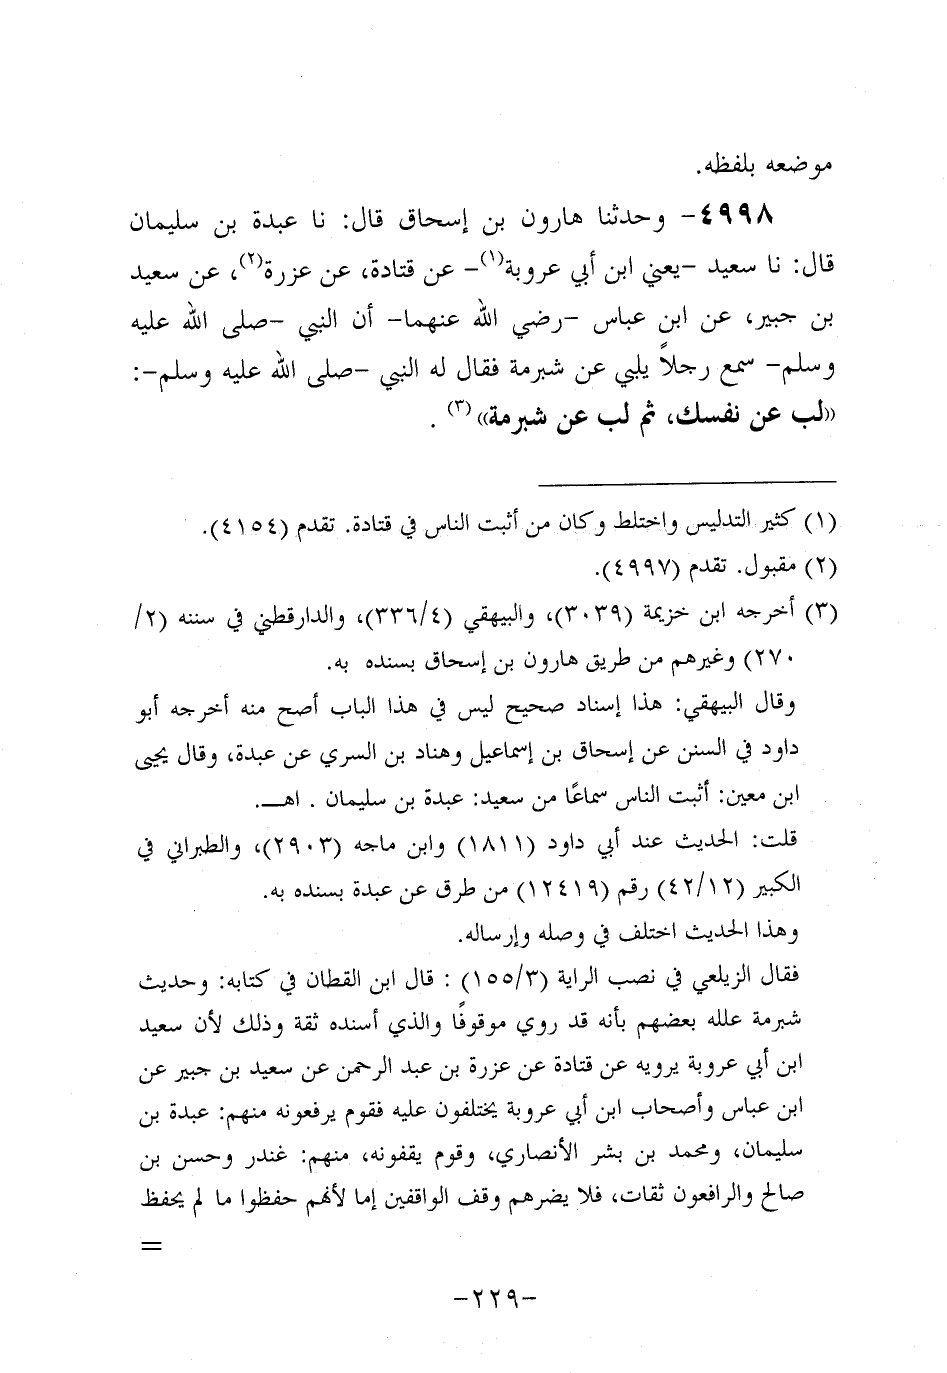 موضعه بلفظه.
٤٩٩٨- وحدثنا هارون بن إسحاق قال: نا عبدة بن سليمان
قال: نا سعيد -يعني ابن أبي عروبة(١)- عن قتادة، عن عزرة(٢)، عن سعيد
بن جبير، عن ابن عباس -رضي الله عنهما- أن النبي -صلى الله عليه
وسلم- سمع رجلاً يلبي عن شبرمة فقال له النبي -صلى الله عليه وسلم-:
«لب عن نفسك، ثم لب عن شبرمة»(٣) .
(١) كثير التدليس واختلط وكان من أثبت الناس في قتادة. تقدم (٤١٥٤).
(٢) مقبول. تقدم (٤٩٩٧).
(٣) أخرجه ابن خزيمة (٣٠٣٩)، والبيهقي (٣٣٦/٤)، والدارقطني في سننه (٢/
٢٧٠) وغيرهم من طريق هارون بن إسحاق بسنده به.
وقال البيهقي: هذا إسناد صحيح ليس في هذا الباب أصح منه أخرجه أبو
داود في السنن عن إسحاق بن إسماعيل وهناد بن السري عن عبدة، وقال يحيى
ابن معين: أثبت الناس سماعًا من سعيد: عبدة بن سليمان . اهـ.
قلت: الحديث عند أبي داود (١٨١١) وابن ماجه (٢٩٠٣)، والطبراني في
الكبير (٤٢/١٢) رقم (١٢٤١٩) من طرق عن عبدة بسنده به.
وهذا الحديث اختلف في وصله وإرساله.
فقال الزيلعي في نصب الراية (١٥٥/٣) : قال ابن القطان في كتابه: وحديث
شبرمة علله بعضهم بأنه قد روي موقوفًا والذي أسنده ثقة وذلك لأن سعيد
ابن أبي عروبة يرويه عن قتادة عن عزرة بن عبد الرحمن عن سعيد بن جبير عن
ابن عباس وأصحاب ابن أبي عروبة يختلفون عليه فقوم يرفعونه منهم: عبدة بن
سليمان، ومحمد بن بشر الأنصاري، وقوم يقفونه، منهم: غندر وحسن بن
صالح والرافعون ثقات، فلا يضرهم وقف الواقفين إما لأنهم حفظوا ما لم يحفظ
=
-٢٢٩-